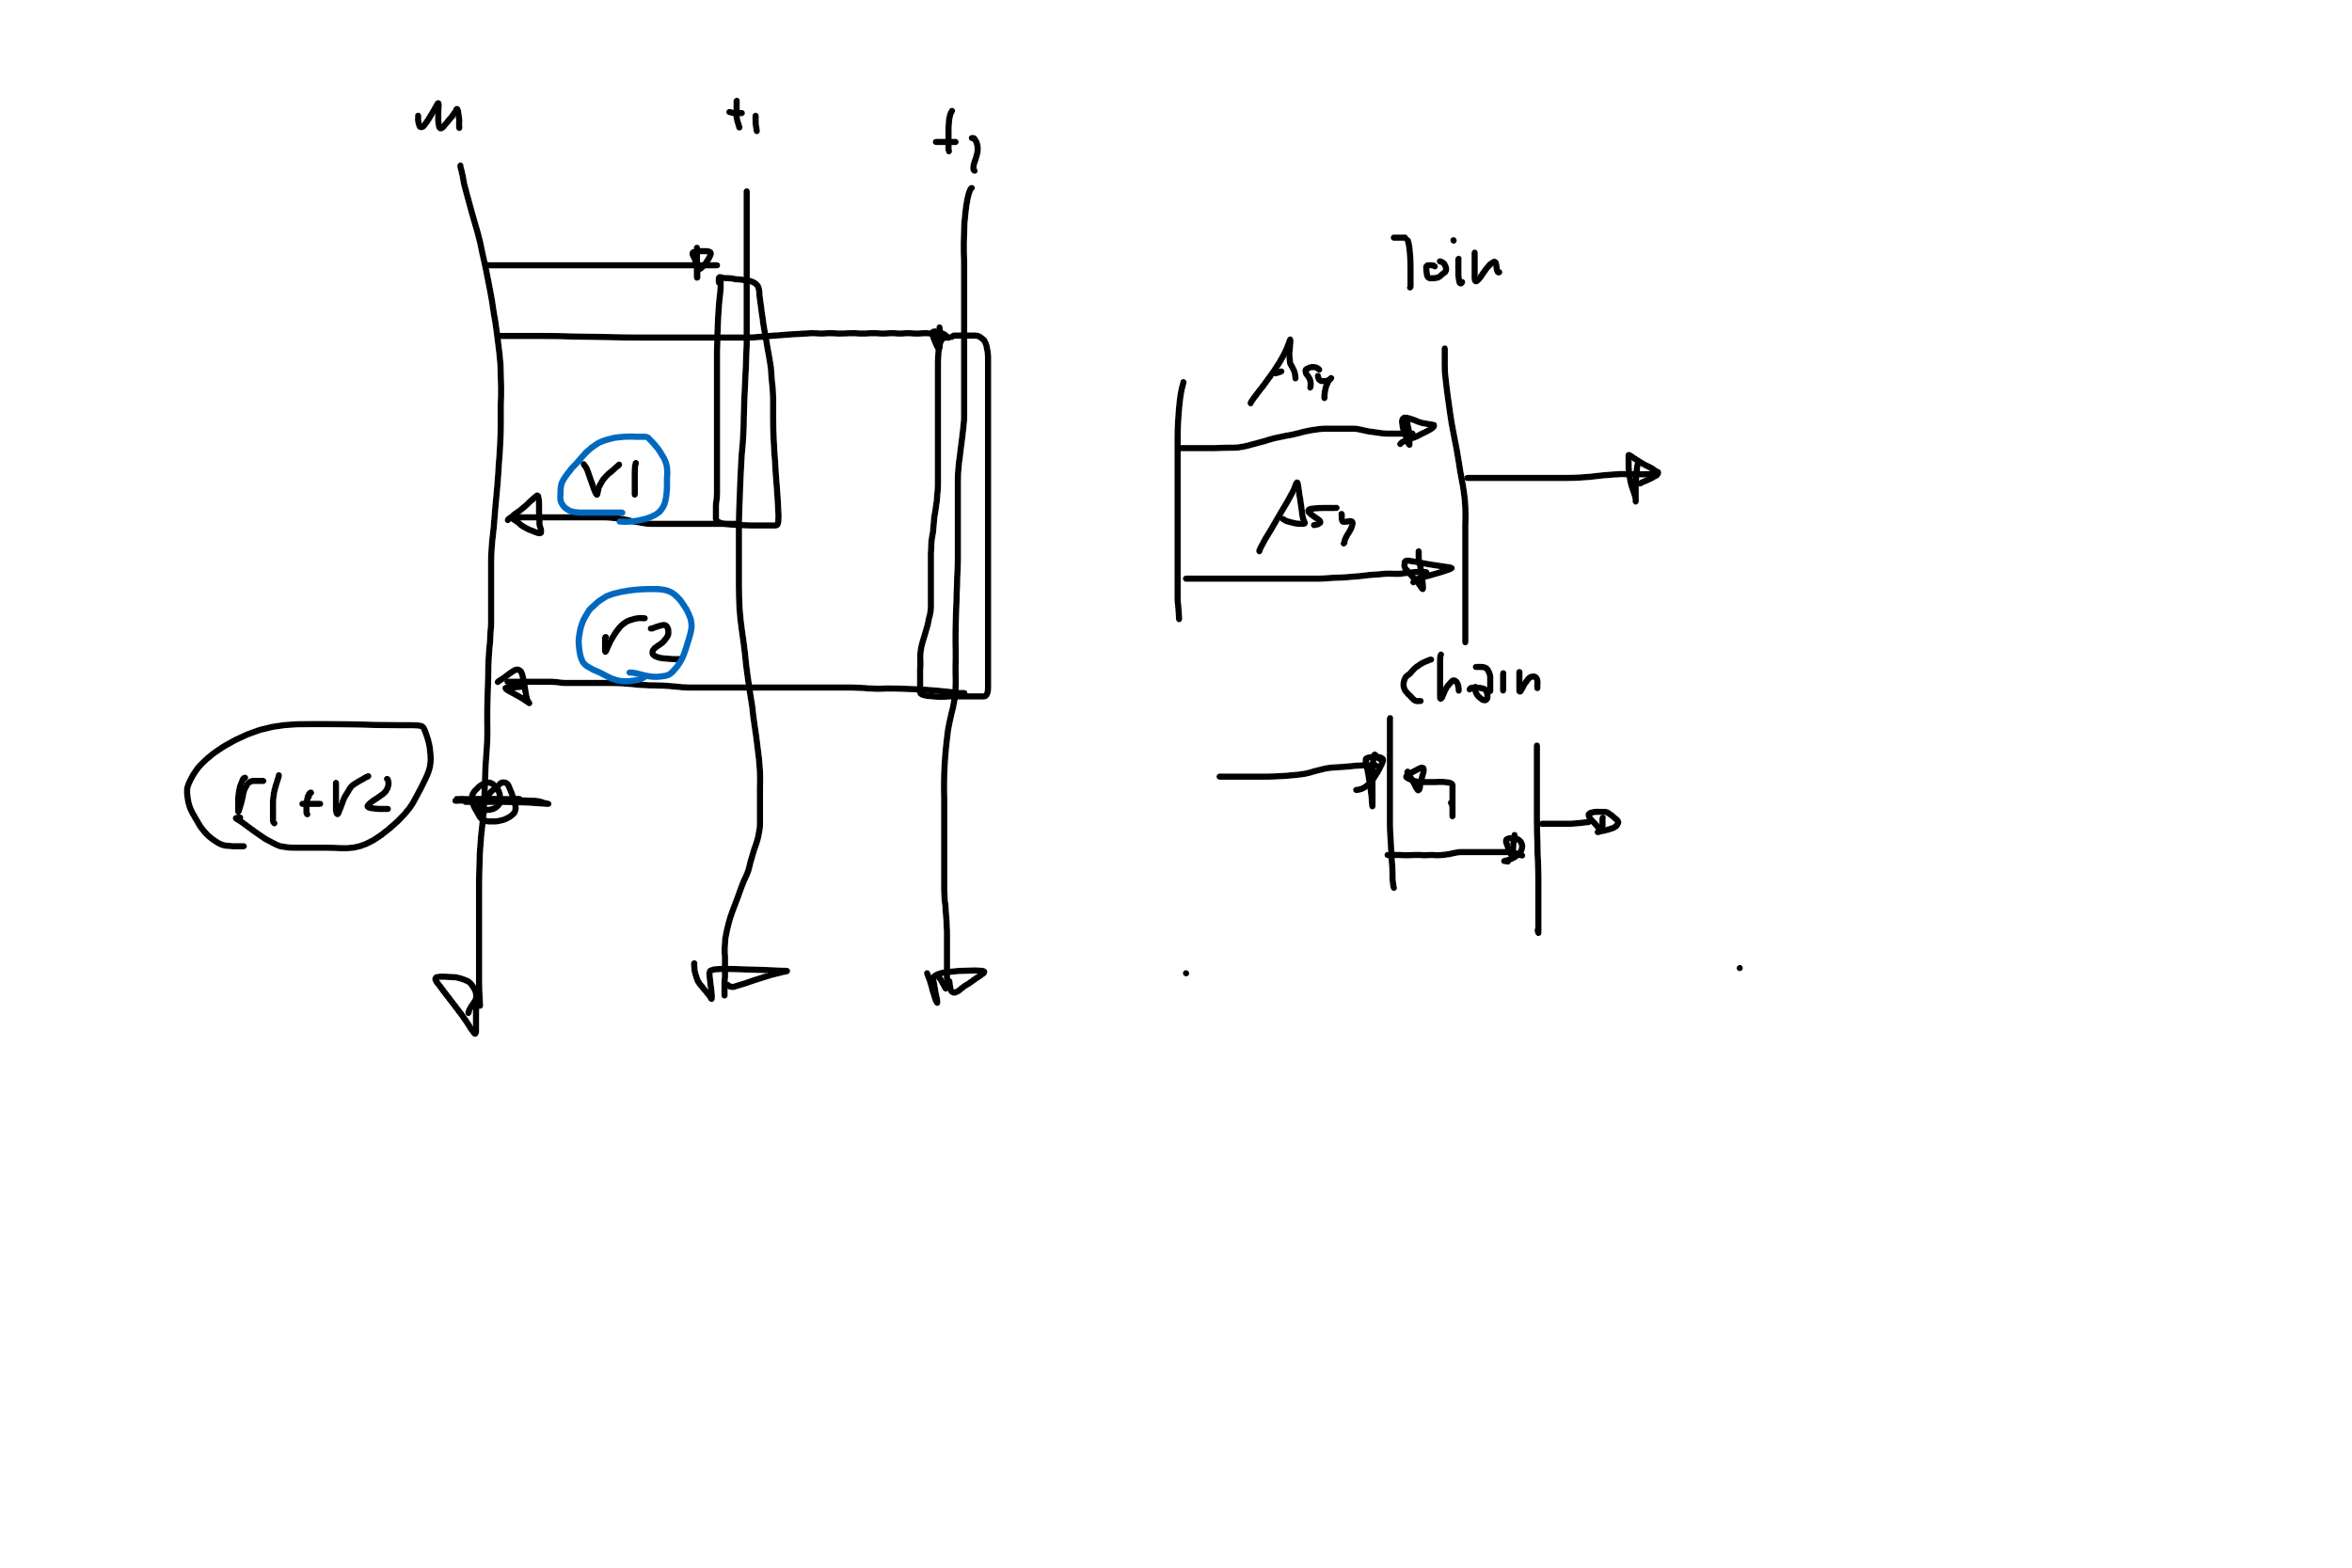 m
t1
t2
r1
r2
r1+r2
Join
Asy
Asy
Chain